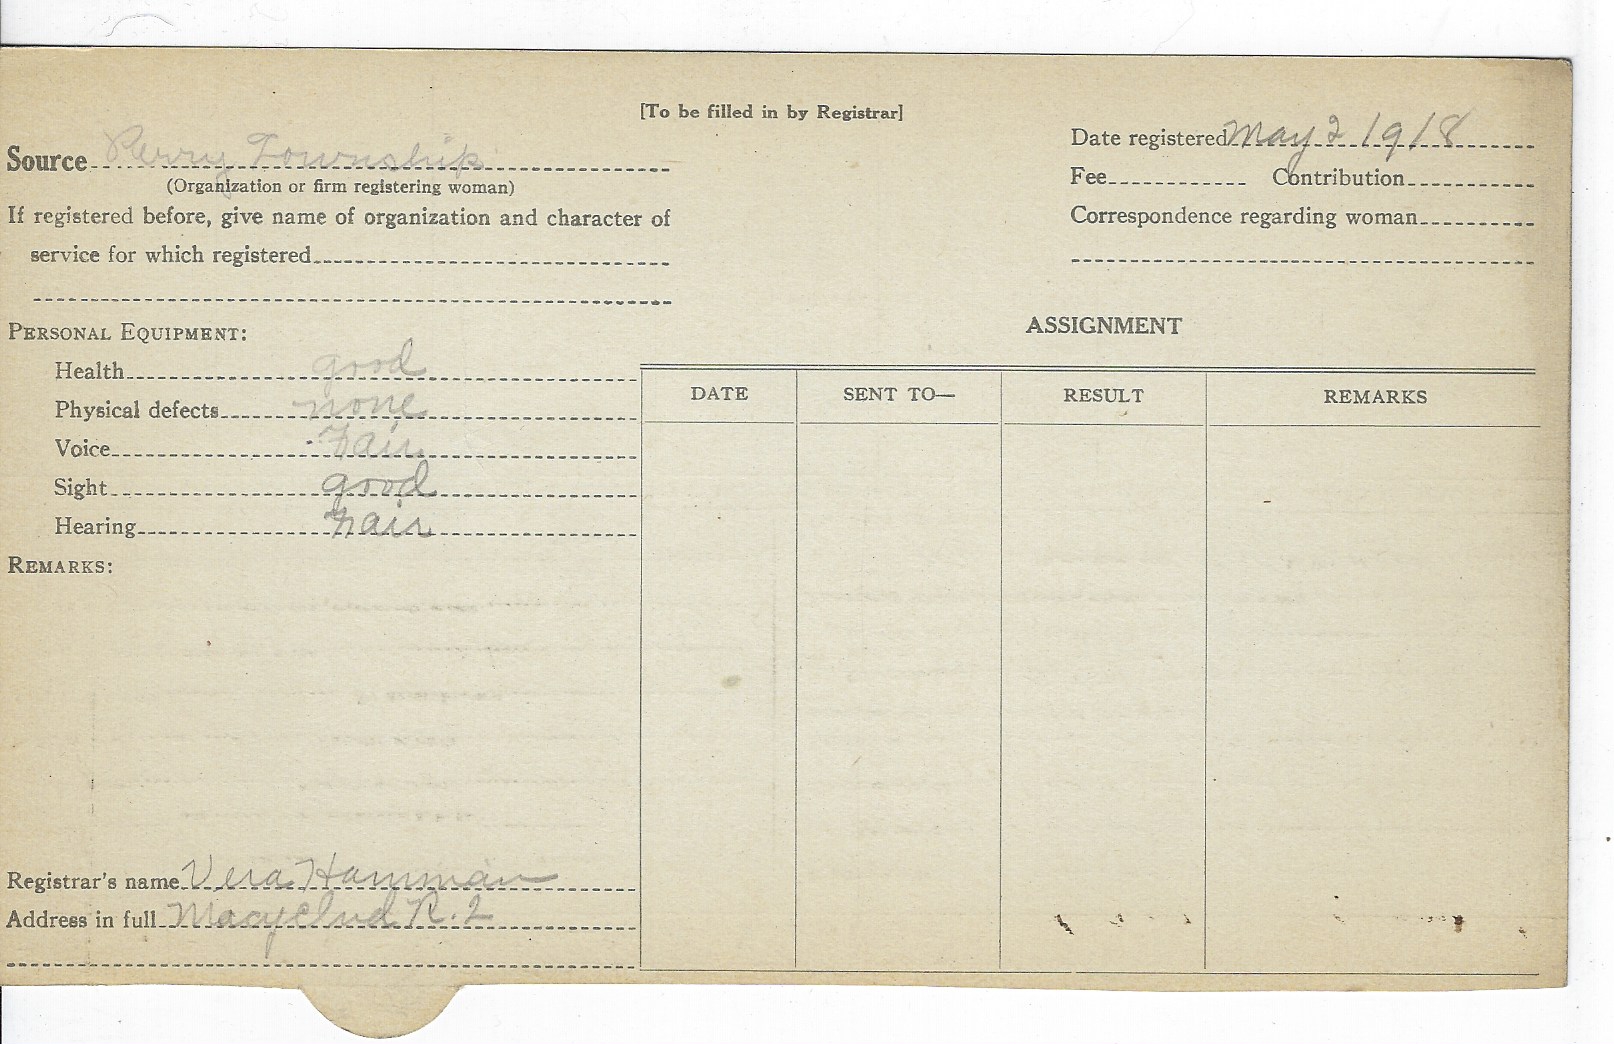 [To be filled in by Registrar]
Source Perry Township
(Organization or firm registering woman)
If registered before, give name of organization and character of
service for which registered
Date registered May 2 1918
Fee Contribution
Correspondence regarding woman
PERSONAL EQUIPMENT:
Health good
Physical defects none
Voice Fair
Sight good
Hearing Fair
REMARKS:
ASSIGNMENT
DATE SENT TO— RESULT REMARKS
Registrar's name Vera Hamman
Address in full Macy Ind R. 2